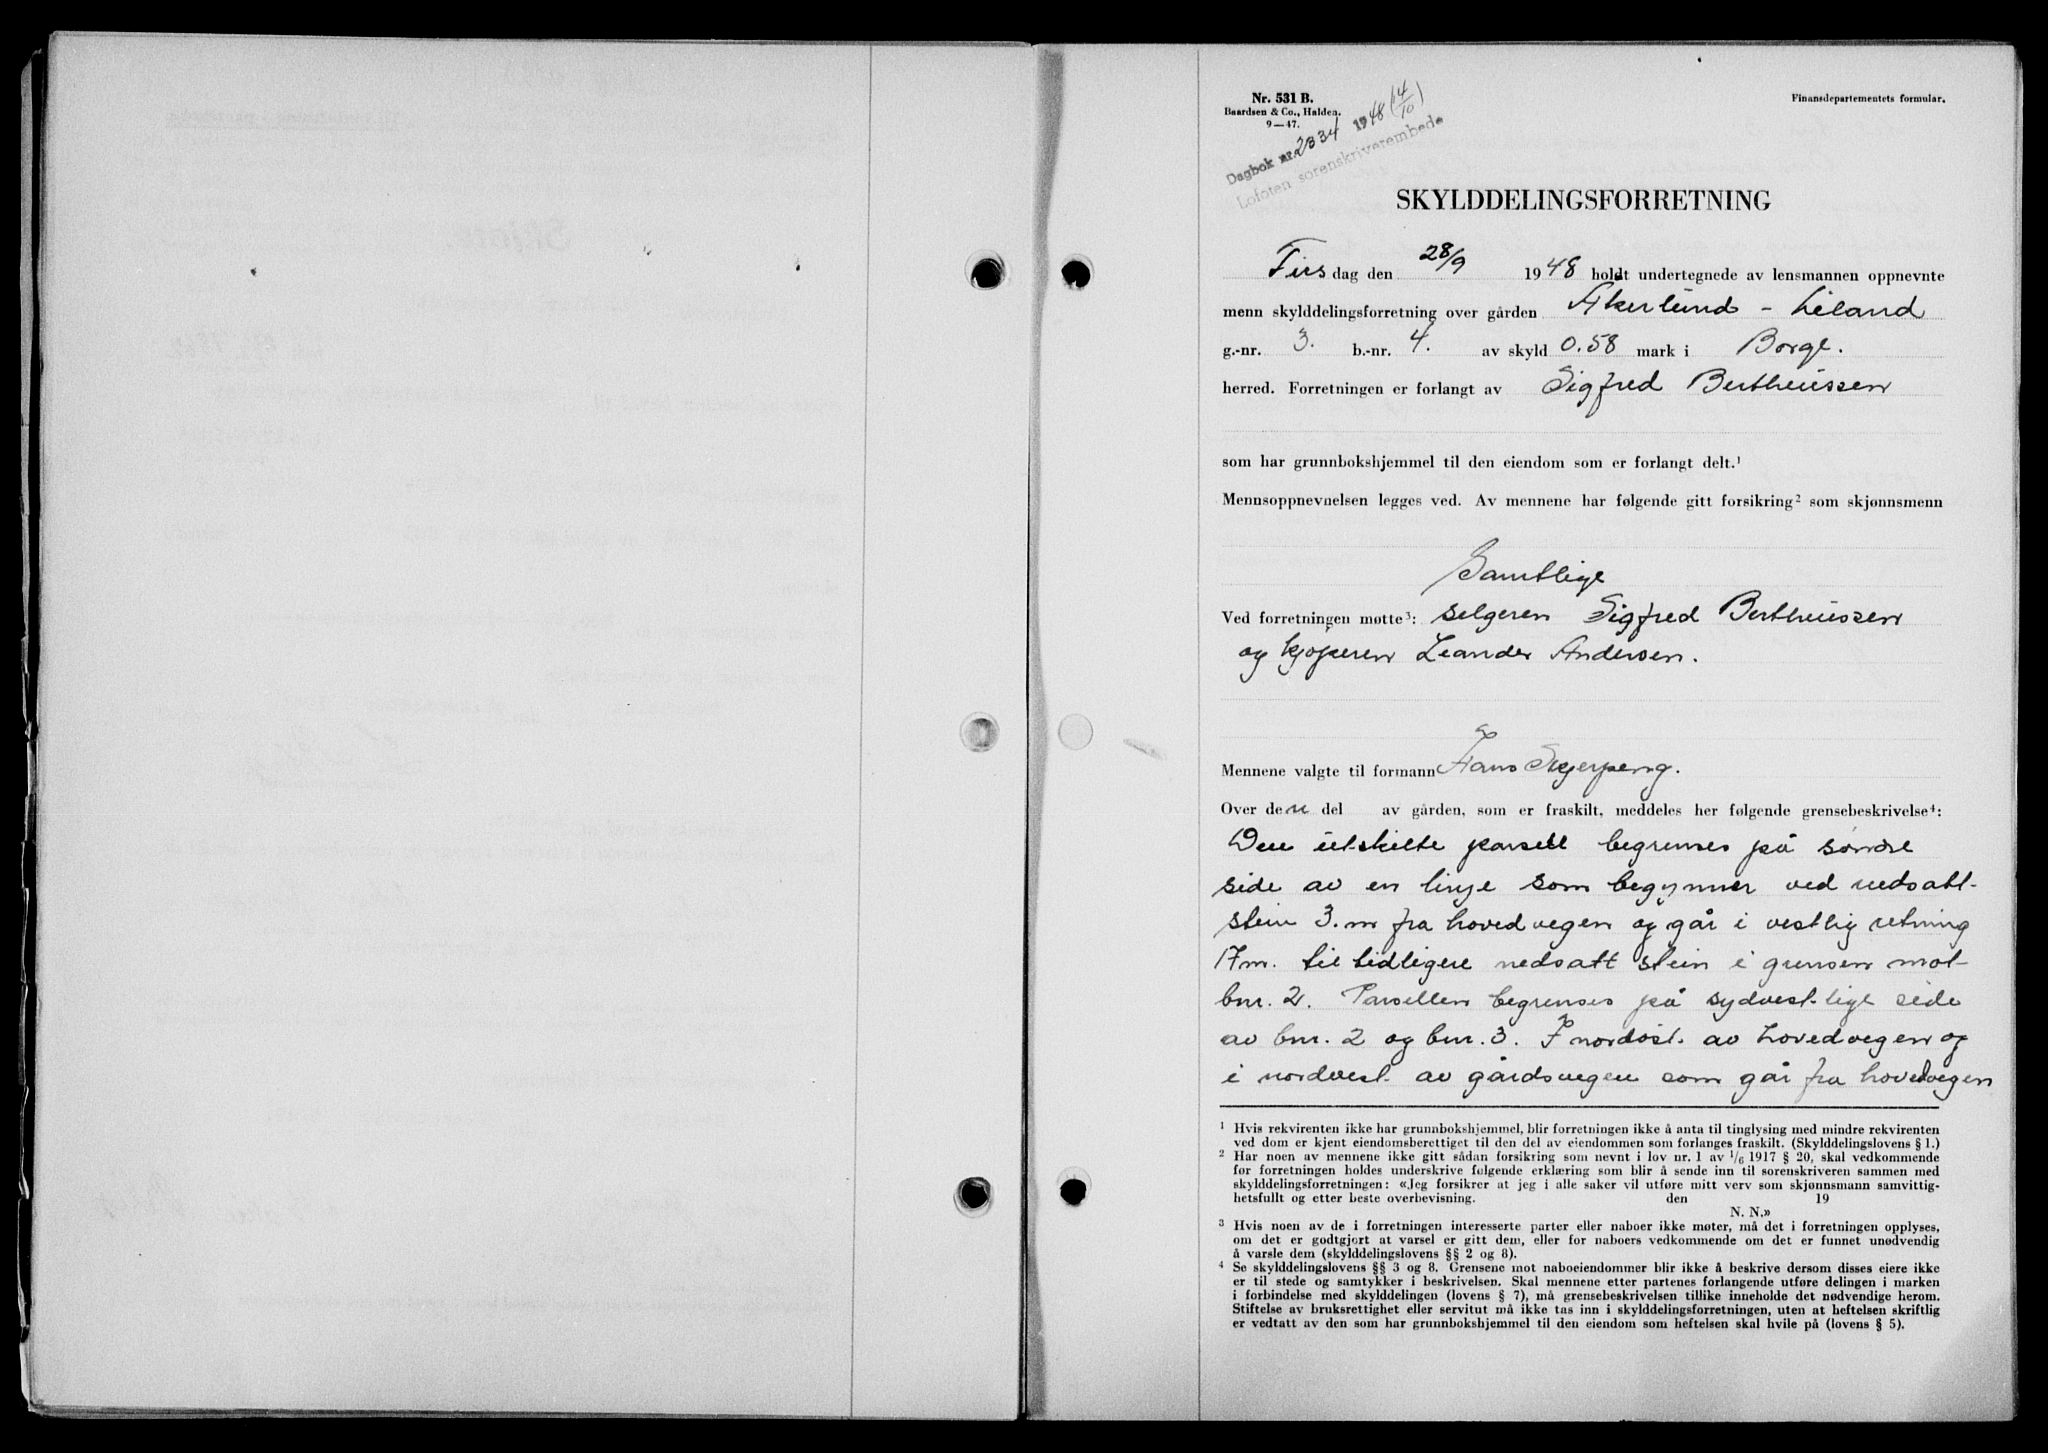 Nr. 531 B.
Baardsen & Co., Halden.
9—47.
Finansdepartementets formular.
Dagbok nr. 2334 1948 (4/10)
Lofoten sorenskriverembede
SKYLDDELINGSFORRETNING
Tirsdag den 28/9 1948 holdt undertegnede av lensmannen oppnevnte
menn skylddelingsforretning over gården Åkerlund - Liland
g.-nr. 3. b.-nr. 4. av skyld 0.58 mark i Borge.
herred. Forretningen er forlangt av Sigfred Bertheussen
som har grunnbokshjemmel til den eiendom som er forlangt delt.¹
Mennsoppnevnelsen legges ved. Av mennene har følgende gitt forsikring² som skjønnsmenn
Samtlige
Ved forretningen møtte³: selgeren Sigfred Bertheussen
og kjøperen Leander Andersen.
Mennene valgte til formann Hans Skjerpeng.
Over den del av gården, som er fraskilt, meddeles her følgende grensebeskrivelse⁴:
Den utskilte parsell begrenses på søndre
side av en linje som begynner ved nedsatt-
stein 3.m fra hovedvegen og går i vestlig retning
17m. til tidligere nedsatt stein i grensen mot-
bnr. 2. Parsellen begrenses på sydvestlige side
av bnr. 2 og bnr. 3. I nordøst. av hovedvegen og
i nordvest. av gårdsvegen som går fra hovedvegen
¹ Hvis rekvirenten ikke har grunnbokshjemmel, blir forretningen ikke å anta til tinglysing med mindre rekvirenten
ved dom er kjent eiendomsberettiget til den del av eiendommen som forlanges fraskilt. (Skylddelingslovens § 1.)
² Har noen av mennene ikke gitt sådan forsikring som nevnt i lov nr. 1 av 1/6 1917 § 20, skal vedkommende
før forretningen holdes underskrive følgende erklæring som blir å sende inn til sorenskriveren sammen med
skylddelingsforretningen: «Jeg forsikrer at jeg i alle saker vil utføre mitt verv som skjønnsmann samvittig-
hetsfullt og etter beste overbevisning. den 19
N. N.»
³ Hvis noen av de i forretningen interesserte parter eller naboer ikke møter, må det i forretningen opplyses,
om det er godtgjort at varsel er gitt dem, eller for naboers vedkommende om det er funnet unødvendig
å varsle dem (skylddelingslovens §§ 2 og 8).
⁴ Se skylddelingslovens §§ 3 og 8. Grensene mot naboeiendommer blir ikke å beskrive dersom disses eiere ikke
er til stede og samtykker i beskrivelsen. Skal mennene etter partenes forlangende utføre delingen i marken
i forbindelse med skylddelingen (lovens § 7), må grensebeskrivelsen tillike inneholde det nødvendige herom.
Stiftelse av bruksrettighet eller servitut må ikke tas inn i skylddelingsforretningen, uten at heftelsen skriftlig
er vedtatt av den som har grunnbokshjemmel til den eiendom som heftelsen skal hvile på (lovens § 5).